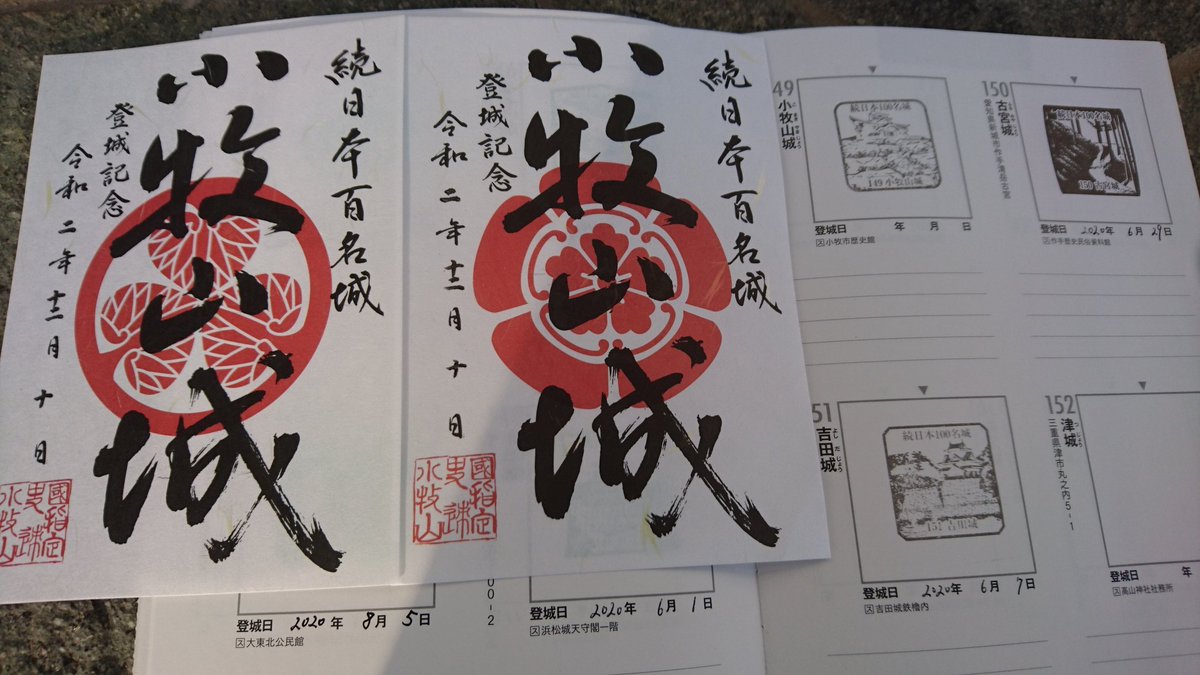 続日本百名城
小牧山城
登城記念
令和二年十二月十日
國指定
史跡
小牧山
続日本百名城
小牧山城
登城記念
令和二年十二月十日
國指定
史跡
小牧山
49 小牧山城
続日本100名城
149 小牧山城
登城日 年 月 日
図小牧市歴史館
150 古宮城
愛知県新城市作手清岳古宮
続日本100名城
150 古宮城
登城日 2020年 6月 29日
図作手歴史民俗資料館
51 吉田城
よしだじょう
続日本100名城
151 吉田城
登城日 2020年 6月 7日
図吉田城鉄櫓内
152 津城
つじょう
三重県津市丸之内5-1
登城日 年
図高山神社社務所
登城日 2020年 8月 5日
図大東北公民館
00-2
登城日 2020年 6月 1日
図浜松城天守閣一階